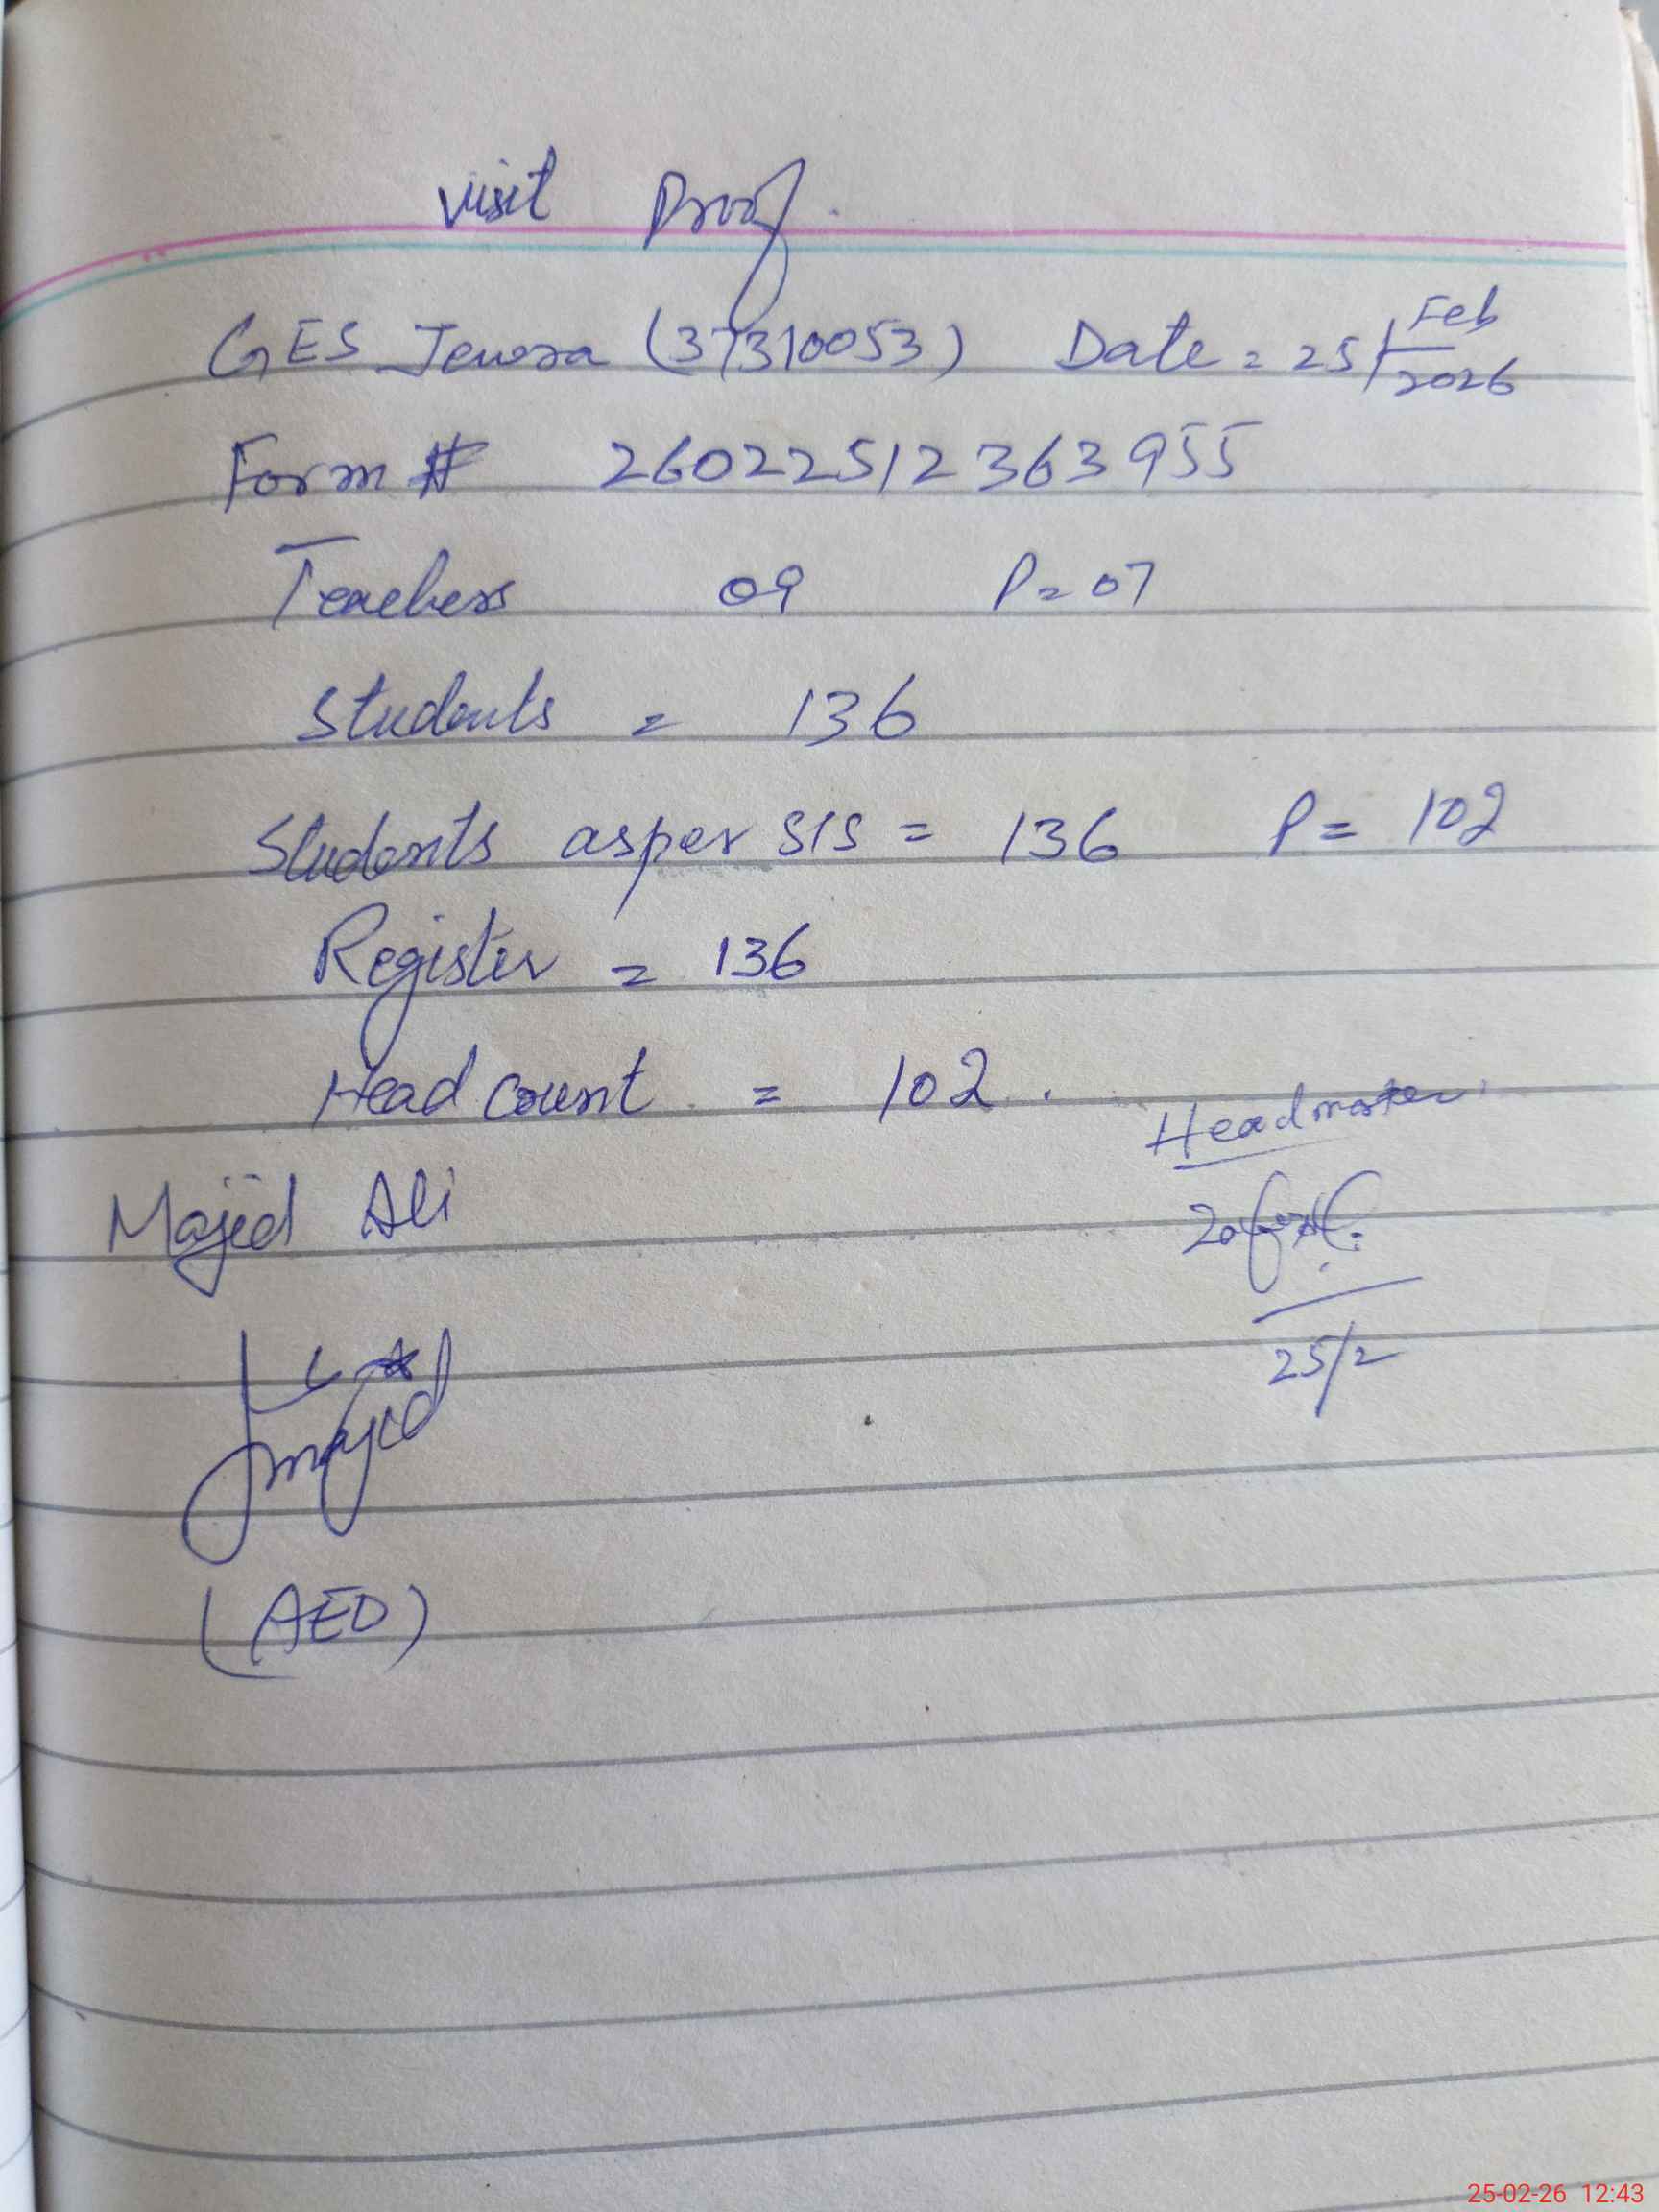 visit Proof.
GES Jewora (37310053) Date = 25/Feb/2026
Form # 26022512363955
Teachers 09 P=07
Students = 136
Students as per SIS = 136 P= 102
Register = 136
Head count = 102.
Headmaster
Majid Ali
25/2
majid
(AEO)
25-02-26 12:43